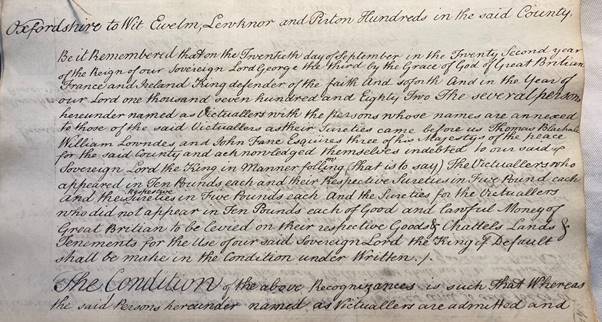 Oxfordshire to Wit Ewelm, Lewknor and Pirton Hundreds in the said County.
Be it Remembered that on the Twentieth day of September in the Twenty Second year
of the Reign of our Sovereign Lord George the third by the Grace of God of Great Britian
France and Ireland King defender of the faith And soforth And in the Year of
our Lord one thousand seven hundred and Eighty Two The several persons
hereunder named as Victuallers with the persons whose names are annexed
to those of the said Victuallers as their Sureties came before us Thomas Blackall
William Lowndes, and John Fane Esquires three of his Majestys of the peace
for the said County and acknowledged themselves indebted to our said
Sovereign Lord the King in Manner follg (That is to say) The Victuallers who
appeared in Ten Pounds each and their Respective Sureties in Five Pound each
And the respective Sureties in Five Pounds each And the Sureties for the Victuallers
who did not appear in Ten Pounds each of Good and lawful Money of
Great Britian to be levied on their respective Goods & Chattels Lands &
Tenements for the Use of our said Sovereign Lord the King if Default
shall be made in the Condition under Written ./.
The Condition of the above Recognizances is such That Whereas
the said Persons hereunder named as Victuallers are admitted and